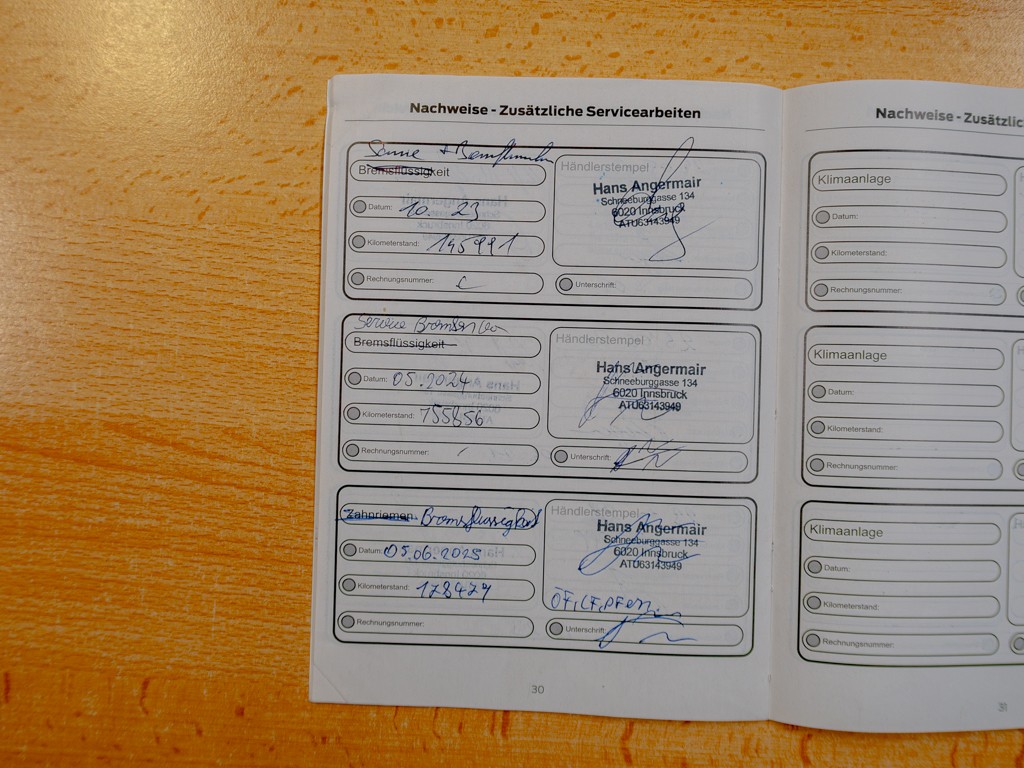 Nachweise - Zusätzliche Servicearbeiten
Bremsflüssigkeit
Datum: 10. 23
Kilometerstand: 145991
Rechnungsnummer:
Händlerstempel
Hans Angermair
Schneeburggasse 134
6020 Innsbruck
ATU63143949
Unterschrift:
Service
Bremsflüssigkeit
Datum: 05.2024
Kilometerstand: 155856
Rechnungsnummer:
Händlerstempel
Hans Angermair
Schneeburggasse 134
6020 Innsbruck
ATU63143949
Unterschrift:
Zahnriemen Bremsflüssigkeit
Datum: 05.06.2025
Kilometerstand: 178474
Rechnungsnummer:
Händlerstempel
Hans Angermair
Schneeburggasse 134
6020 Innsbruck
ATU63143949
ÖF, LF, PF
Unterschrift:
30
Nachweise - Zusätzlic
Klimaanlage
Datum:
Kilometerstand:
Rechnungsnummer:
Klimaanlage
Datum:
Kilometerstand:
Rechnungsnummer:
Klimaanlage
Datum:
Kilometerstand:
Rechnungsnummer:
31